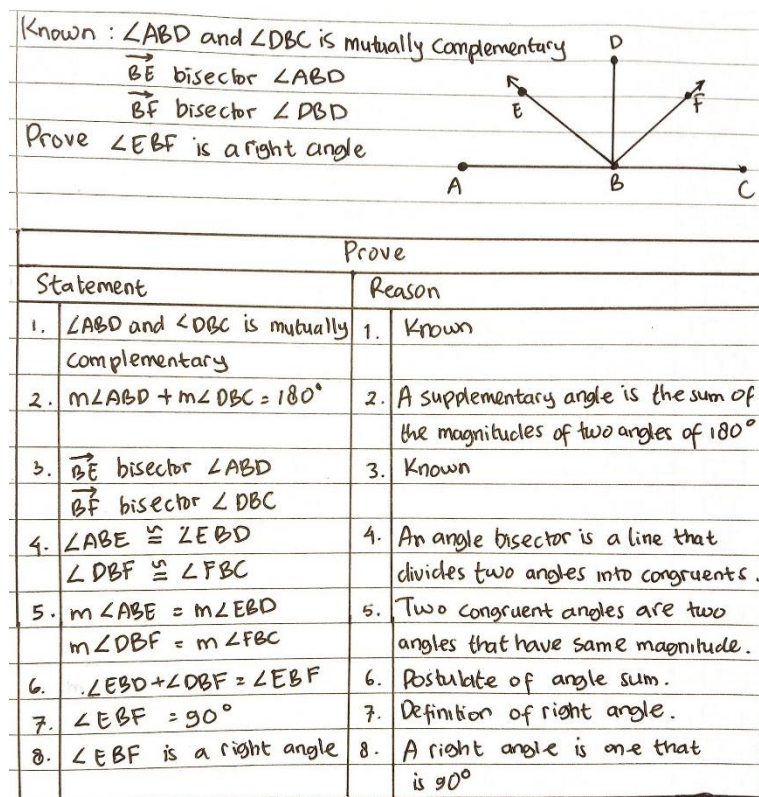 Known : ∠ABD and ∠DBC is mutually complementary
BE bisector ∠ABD
BF bisector ∠DBD
Prove ∠EBF is a right angle
D
E
F
A
B
C
Prove
Statement
Reason
1. ∠ABD and ∠DBC is mutually
complementary
1. Known
2. m∠ABD + m∠DBC = 180°
2. A supplementary angle is the sum of
the magnitudes of two angles of 180°
3. BE bisector ∠ABD
BF bisector ∠DBC
3. Known
4. ∠ABE ≅ ∠EBD
∠DBF ≅ ∠FBC
4. An angle bisector is a line that
divides two angles into congruents.
5. m∠ABE = m∠EBD
m∠DBF = m∠FBC
5. Two congruent angles are two
angles that have same magnitude.
6. ∠EBD+∠DBF = ∠EBF
6. Postulate of angle sum.
7. ∠EBF = 90°
7. Definition of right angle.
8. ∠EBF is a right angle
8. A right angle is one that
is 90°